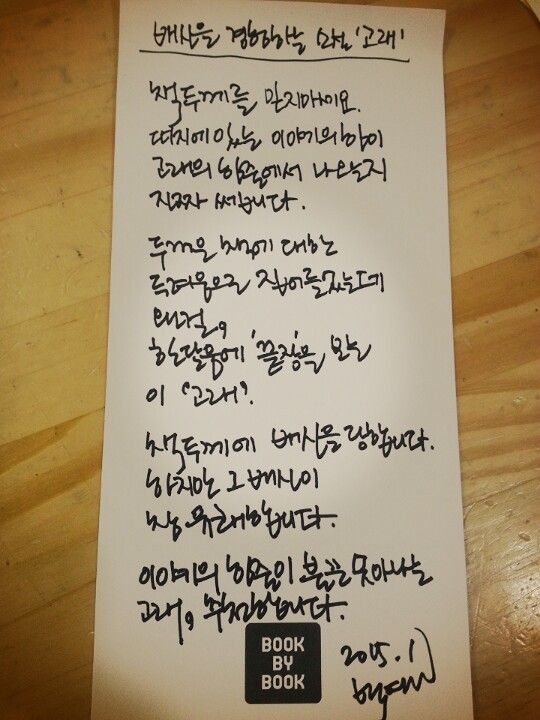 배신을 경험하는 소설 '고래'
책두께를 믿지마세요.
띠지에 있는 이야기의 힘이
고래의 힘줄에서 나오는지
진짜 쎄답니다.
두꺼운 책에 대한
두려움으로 집어들었는데
왠걸,
한달음에 '끝장'을 보는
이 '고래'.
책두께에 배신을 당합니다.
하지만 그 배신이
참 유쾌합니다.
이야기의 힘줄이 불끈 솟아나는
고래, 추천합니다.
BOOK
BY
BOOK
2015. 1